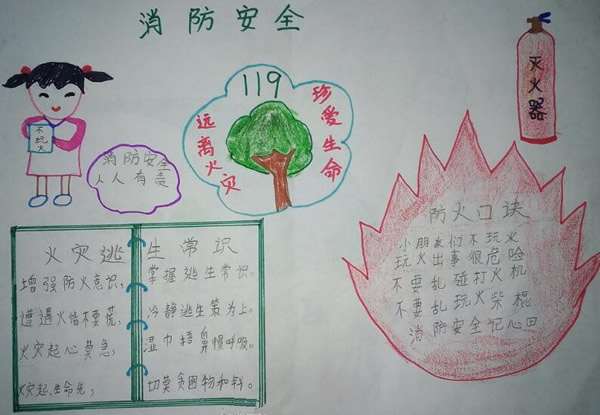 消防安全
不玩火
消防安全
人人有责
119
远离火灾
珍爱生命
灭火器
火灾逃生常识
增强防火意识，掌握逃生常识。
遭遇火情不要慌，冷静逃生策为上。
火灾起心莫急，湿巾捂鼻慢呼吸。
火灾起、生命先，切莫贪图物和钱。
防火口诀
小朋友们不玩火
玩火出事很危险
不要乱碰打火机
不要乱玩火柴棍
消防安全记心田